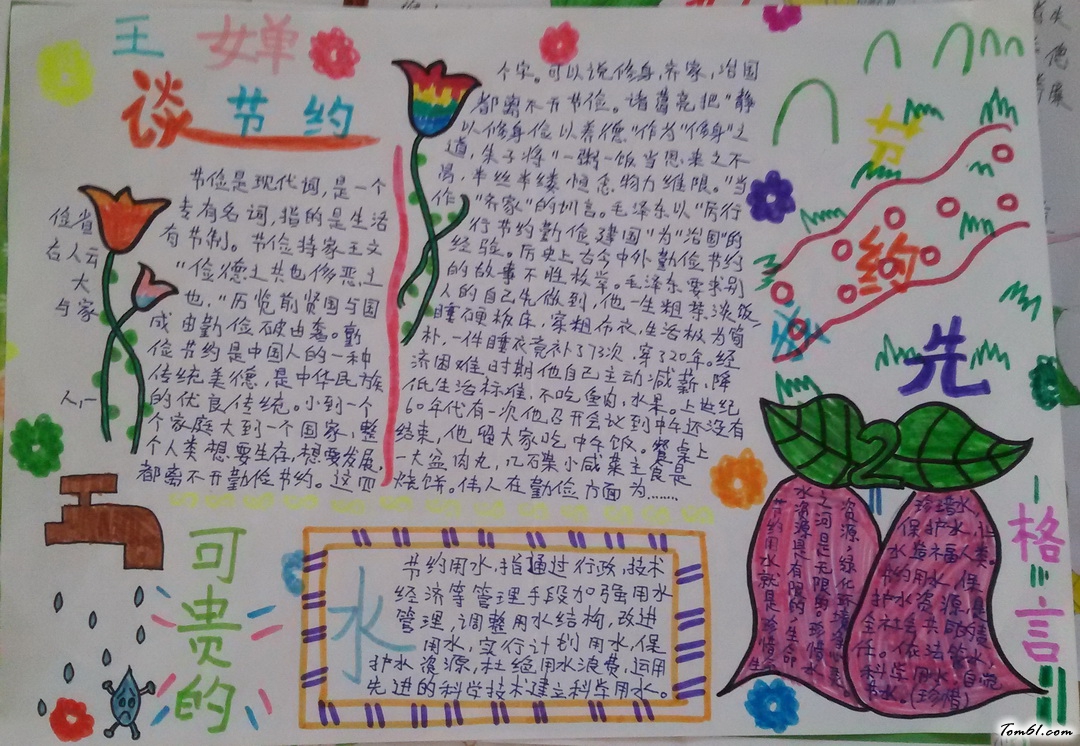 王 女婵
谈节约
节俭是现代词,是一个
专有名词,指的是生活
有节制。节俭持家王文
"俭德之共也侈恶之
也,"历览前贤国与国
成由勤俭破由奢。勤
俭节约是中国人的一种
传统美德,是中华民族
的优良传统。小到一个
个家庭大到一个国家,整
个人类想要生存,想要发展,
都离不开勤俭节约。这四
俭省
古人云
大
与家
个字。可以说修身,齐家,治国
都离不开节俭。诸葛亮把"静
以修身俭以养德"作为"修身"之
道,朱子将"一粥一饭当思来之不
易,半丝半缕恒念物力维限。"当
作"齐家"的训言。毛泽东以"厉行
行节约勤俭建国"为"治国"的
经验。历史上古今中外勤俭节约
的故事不胜枚举。毛泽东要求别
人的自己先做到,他一生粗茶淡饭,
睡硬板床,穿粗布衣,生活极为简
朴,一件睡衣竟补了73次,穿了20年。经
济困难时期他自己主动减薪、降
低生活标准,不吃鱼肉,水果。上世纪
60年代有一次他召开会议到中午还没有
结束,他留大家吃中午饭。餐桌上
一大盆肉丸,几石菜小咸菜主食是
烧饼。伟人在勤俭方面为……
节
约
先
格言
水
资源,绿化环境
之河是无限的。珍惜水
水资源是有限的,生命
节约用水就是珍惜生
珍惜水,
保护水,让
水造福人类。
节约用水、保
护水资源,是
全社会共同的责
任。依法管水,
科学用水,自觉
节水。(珍惜)
可贵的
水
节约用水,指通过行政,技术
经济等管理手段加强用水
管理,调整用水结构,改进
用水,实行计划用水,保
护水资源,杜绝用水浪费,运用
先进的科学技术建立科学用水。
Tom61.com